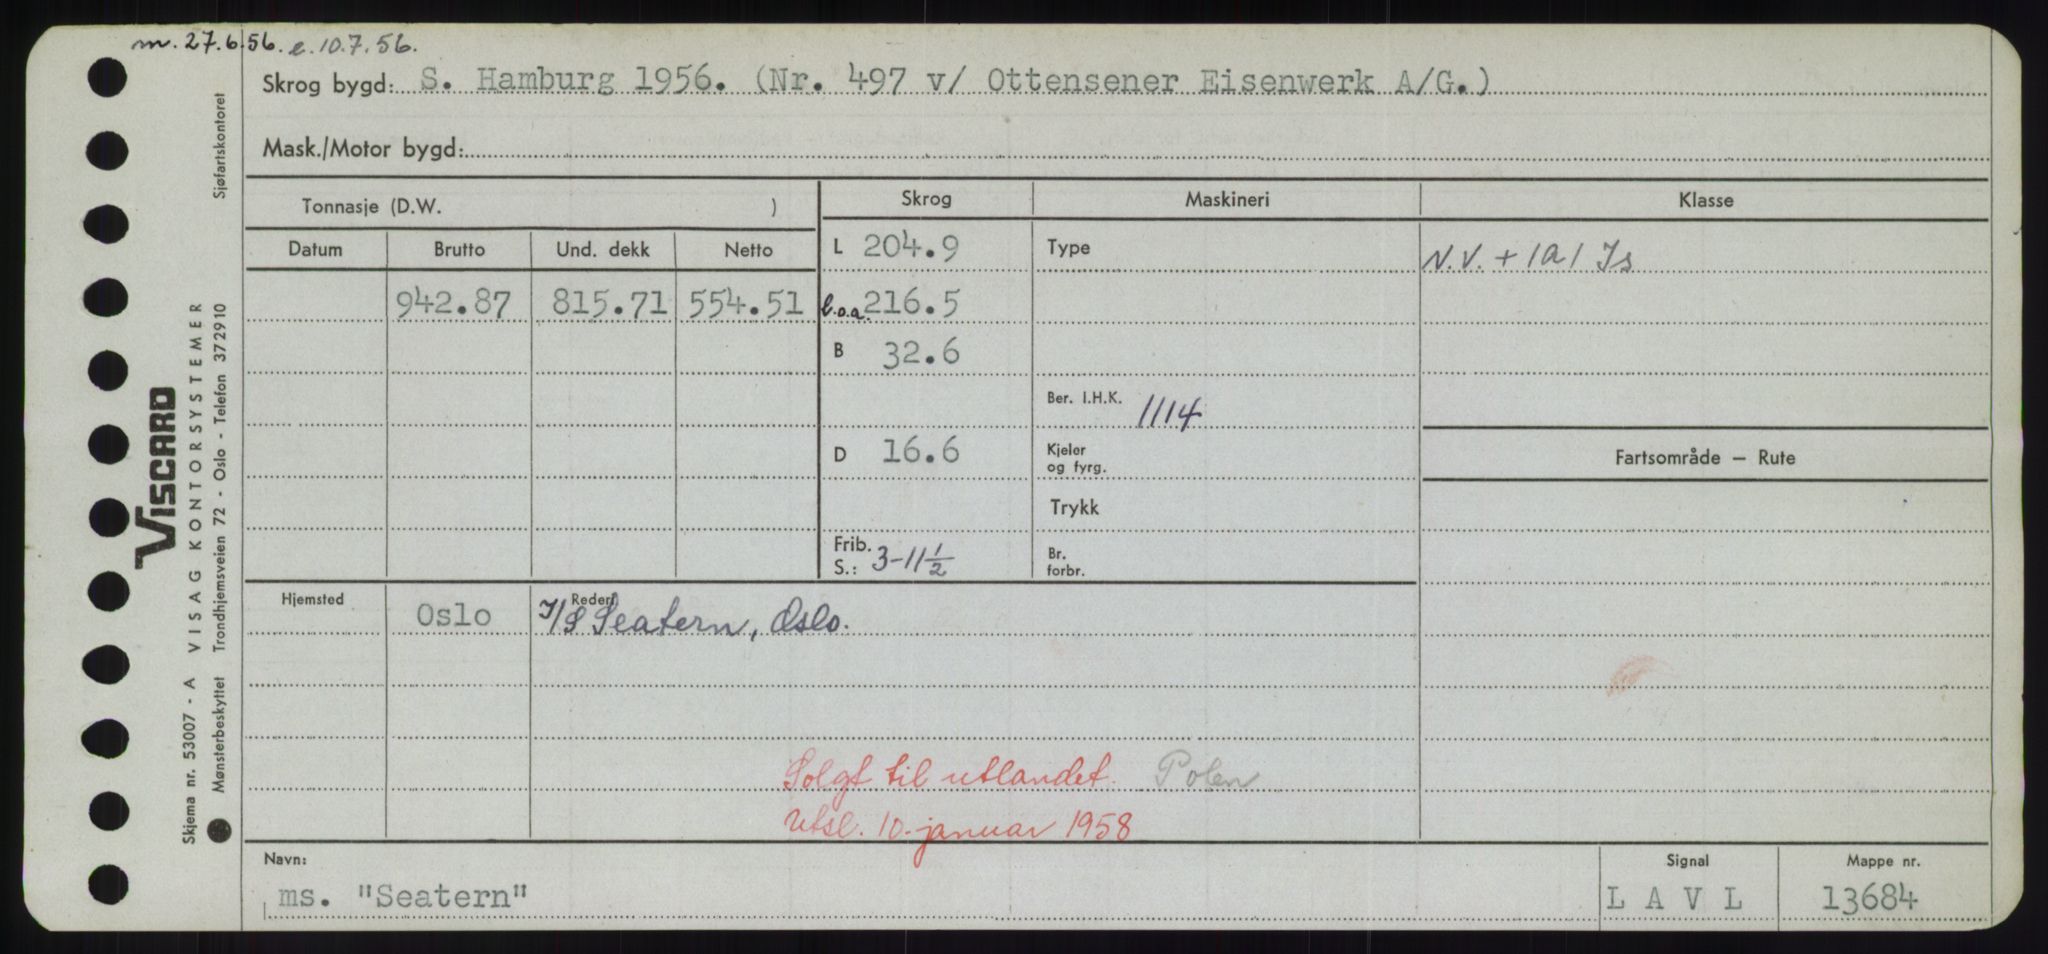 m. 27.6.56. e. 10.7.56.
Skrog bygd: S. Hamburg 1956. (Nr. 497 v/ Ottensener Eisenwerk A/G.)
Mask./Motor bygd:
Tonnasje (D.W. )
Skrog
Maskineri
Klasse
Datum
Brutto
Und. dekk
Netto
L 204.9
Type
N.V. + 1A1 Is
942.87
815.71
554.51
l.o.a. 216.5
B 32.6
Ber. I.H.K. 1114
D 16.6
Kjeler
og fyrg.
Fartsområde — Rute
Trykk
Frib.
S.: 3-11 1/2
Br.
forbr.
Hjemsted
Oslo
Rederi
I/S Seatern, Oslo.
Solgt til utlandet. Polen
Utsl. 10. januar 1958
Navn:
ms. "Seatern"
Signal
L A V L
Mappe nr.
13684
VISCARD
VISAG KONTORSYSTEMER
Skjema nr. 53007 - A
Mønsterbeskyttet
Trondhjemsveien 72 - Oslo - Telefon 372910
Sjøfartskontoret